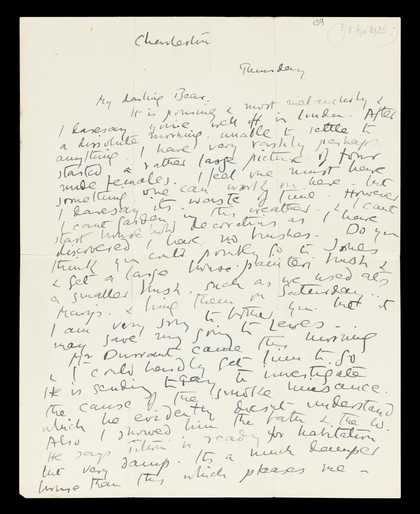 Charleston
Thursday
My darling Bear.
It is pouring & most melancholy &
I daresay you're well off in London. After
a dissolute morning, unable to settle to
anything I have very rashly perhaps
started a rather large picture of four
nude females. I feel one must have
something one can work on here. but
I daresay its waste of time. However
I cant garden in this weather. & I cant
start house decorations as I have
discovered I have no brushes. Do you
think you could possibly go to Jones
& get a large house painters brush &
a smaller brush. such as we used at
& bring them on Saturday.
I am very sorry to bother you. but it
may save my going to Lewes..
Mr Durrant came this morning
& I could hardly get him to go
He is sending today to investigate
the cause of the smoke nuisance.
which he evidently doesnt understand
Also I showed him the bath & the W.
He says is ready for habitation
but very damp. Its a much damper
house than this which pleases me